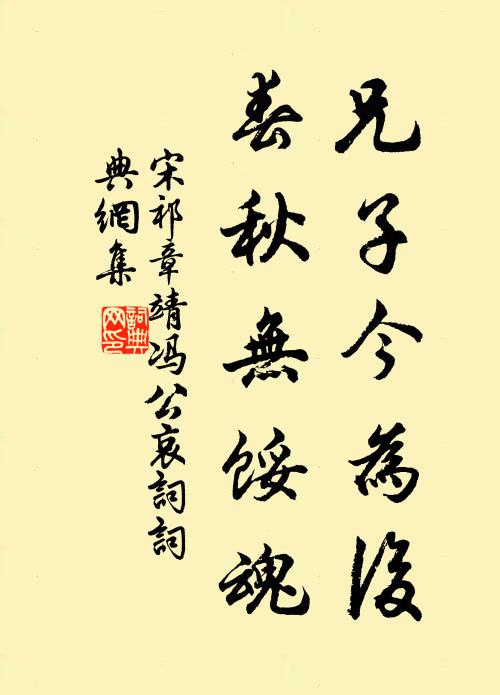 兄子今為後
春秋無餒魂
宋祁章靖冯公哀詞詞
典網集
詞典
网印